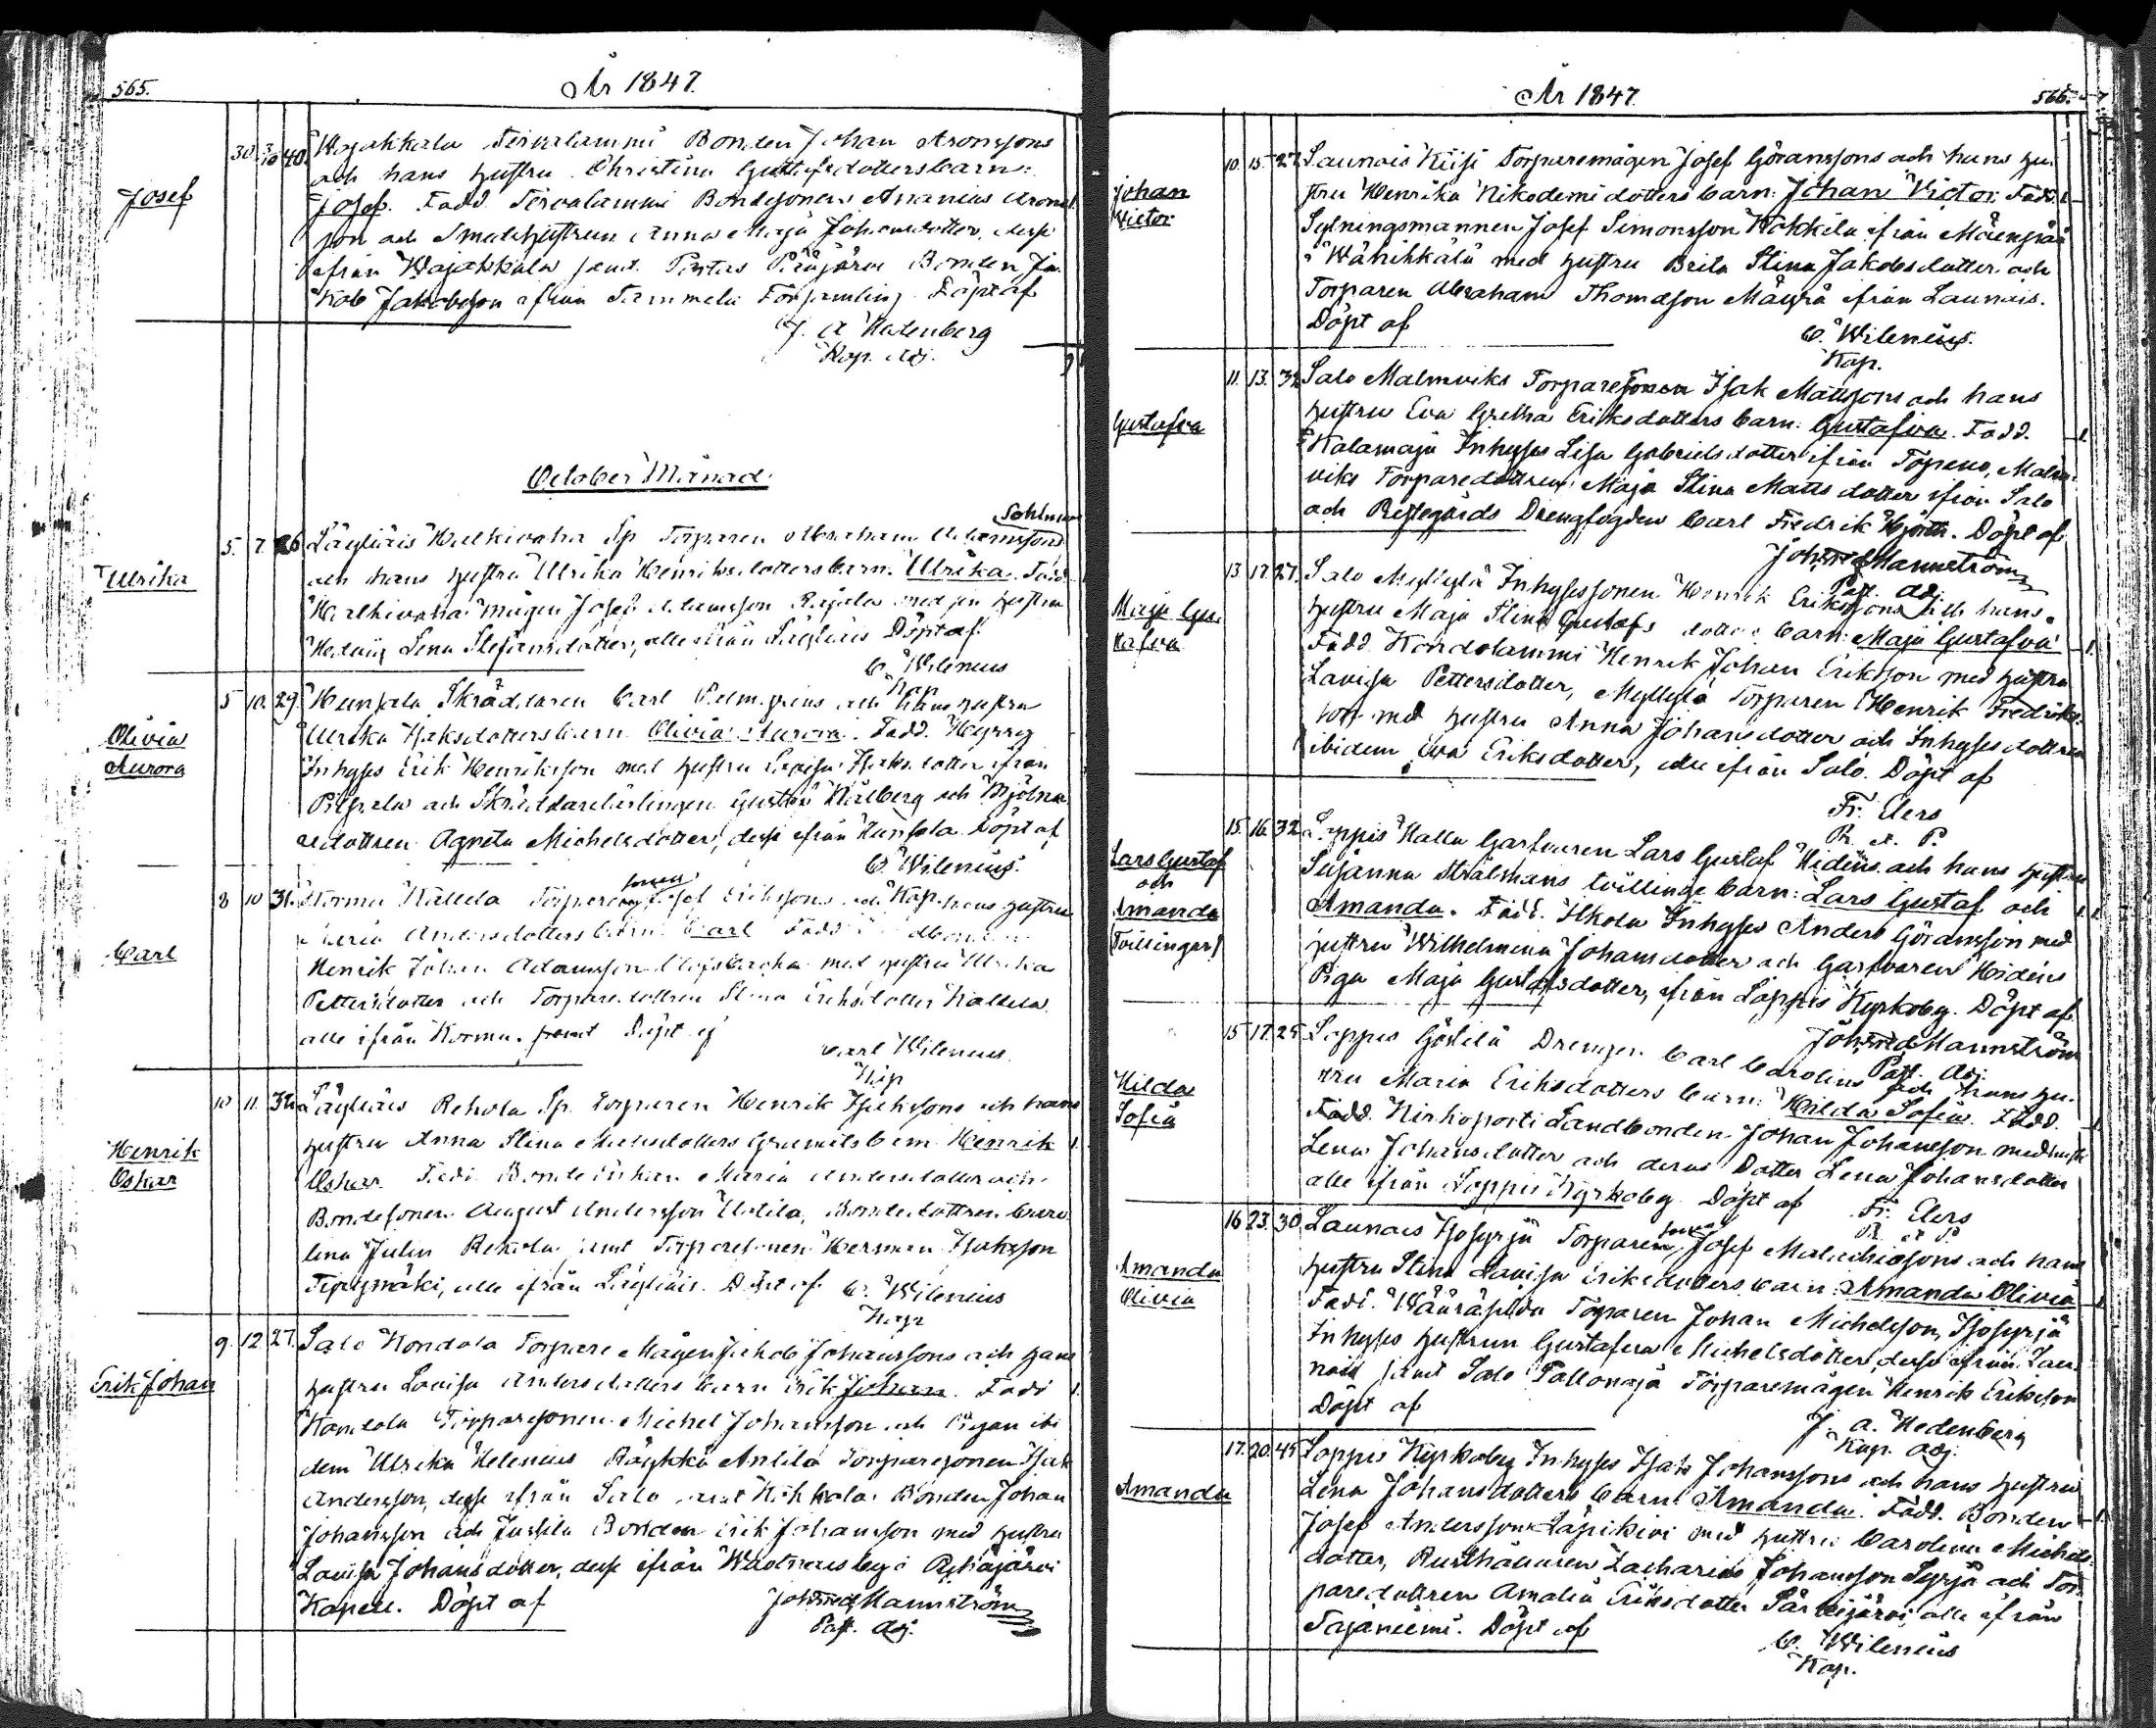 565.
År 1847.
Josef
30. 3/10 40. Wojakkala Tervalammi Bonden Johan Aronssons
och hans hustru Christina Gustafsdotters barn:
Josef. Fadd. Tervalammi Bondesonen Ananias Arons
son och Hustrun Anna Maja Johansdotter, desse
ifrån Wojakkala samt Pääjärvi Bonden Ja-
kob Jakobsson ifrån Tammela Församling. Döpt af
J. A. Hedenberg
Kap. Adj.
October Månad.
Ulrika
5. 7. 26 Läyliäis Halkivaha Sp. Torparen Abraham Adamssons
och hans hustru Ulrika Henriksdotters barn: Ulrika. Fadd.
Halkivaha mågen Josef Adamsson Rajala med sin hustru
Hedvig Lena Stefansdotter, alle ifrån Läyliäis Döpt af
C. Wilenius
Kap
Olivia
Aurora
5 10. 29. Hunsala Skräddaren Carl och hans hustru
Ulrika Isaksdotters barn Olivia Aurora. Fadd. Hyrsy
Inhyses Erik Henriksson med hustru Lovisa Isaksdotter ifrån
Pilpala och Skräddarelärlingen Gustaf Kålberg och Mjölna-
redottren Agneta Michelsdotter, desse ifrån Hunsala Döpt af
C. Wilenius.
Kap.
Carl
8 10 31. Kormu Kallela Torparesonen Josef Erikssons och hans hustru
Maria Andersdotters barn: Carl Fadd.
Henrik Johan Adamsson med hustru Ulrika
Pettersdotter och Torparedottren Stina Eriksdotter Kallela
alle ifrån Kormu. Döpt af
Carl Wilenius
Kap
Henrik
Oskar
10 11. 32 Läyliäis Rehola Sp. Torparen Henrik Isakssons och hans
hustru Anna Stina barn Henrik
Oskar Fadd. Maria Andersdotter och
Bondesonen August Andersson Uotila, Bondedottren Caro-
lina Julin Rehola samt Torparesonen Herman Isaksson
alle ifrån Läyliäis. Döpt af C. Wilenius
Kap
Erik Johan
9. 12 27. Salo Kondola Torpare Mågen Jakob Johanssons och hans
hustru Lovisa Andersdotters barn Erik Johan. Fadd
Kondola Torparesonen Michel Johansson och Pigan ibi
dem Ulrika Helenius Räyhkä Anttila Torparesonen Isak
Andersson, desse ifrån Salo samt Kokkola Bonden Johan
Johansson och Jussila Bonden Erik Johansson med hustru
Lovisa Johansdotter, desse ifrån
Kapell. Döpt af Joh. Fred. Mannström
Past. Adj.
År 1847.
566.
Johan
Victor
10. 15. 27. Launois Kiisi Torparemågen Josef Göranssons och hans hu-
stru Henrika Nikodemidotters barn: Johan Victor. Fadd.
Sytningsmannen Josef Simonsson Wokkila ifrån
med hustru Brita Stina Jakobsdotter och
Torparen Abraham Thomasson Mäyrä ifrån Launois.
Döpt af
C. Wilenius.
Kap.
Gustafva
11. 13. 32 Salo Malmviks Torparesonen Isak Mattssons och hans
hustru Eva Gretha Eriksdotters barn: Gustafva. Fadd.
Kalamaja Inhyses Lisa Gabrielsdotter ifrån Topeno, Malm-
viks Torparedottren Maja Stina Mattsdotter ifrån Salo
och Prestegårds Drengfogden Carl Fredrik Hjorth. Döpt af
Joh. Fred. Mannström
Past. Adj.
Maja Gus-
tafva
13. 17. 27. Salo Myllylä Inhysessonen Henrik Erikssons och hans
hustru Maja Stina Gustafsdotters barn: Maja Gustafva
Fadd. Kondolammi Henrik Johan Eriksson med hustru
Lovisa Pettersdotter, Myllylä Torparen Henrik Fredriks-
son med hustru Anna Johansdotter och Inhysesdottren
ibidem Eva Eriksdotter, alle ifrån Salo. Döpt af
Fr. Elers
P. et P.
Lars Gustaf
och
Amanda
(Tvillingar)
15. 16. 32 Loppis Kalla Garfvaren Lars Gustaf Hidéns och hans hustru
Susanna Strålmans tvillinge barn: Lars Gustaf och
Amanda. Fadd. Ilkola Inhyses Anders Göransson med
hustru Wilhelmina Johansdotter och Garfvaren Hidéns
Piga Maja Gustafsdotter, ifrån Loppis Kyrkoby. Döpt af
Joh. Fred. Mannström
Past. Adj.
Hilda
Sofia
15 17. 25 Loppis Göstilä Drengen Carl Carolins och hans hu-
stru Maria Eriksdotters barn: Hilda Sofia. Fadd.
Fadd. Kirkoportti Landbonden Johan Johansson med hustru
Lena Johansdotter och deras Dotter Lena Johansdotter
alle ifrån Loppis Kyrkoby. Döpt af Fr. Elers
P. et P.
Amanda
Olivia
16 23. 30. Launois Isosyrjä Torparesonen Josef Malachiassons och hans
hustru Stina Lovisa Eriksdotters barn: Amanda Olivia
Fadd. Torparen Johan Michelsson, Isosyrjä
Inhyses hustrun Gustafva Michelsdotter, desse ifrån Lau-
nois samt Salo Torparemågen Henrik Eriksson
Döpt af
J. A. Hedenberg
Kap. Adj.
Amanda
17. 20. 45 Loppis Kyrkoby Inhyses Isak Johanssons och hans hustru
Lena Johansdotters barn: Amanda. Fadd. Bonden
Josef Andersson Läpikivi med hustru Carolina Michels-
dotter, Rusthållaren Zacharias Johansson Syrjä och Tor-
paredottren Amalia Eriksdotter alle ifrån
Sajaniemi. Döpt af
C. Wilenius
Kap.